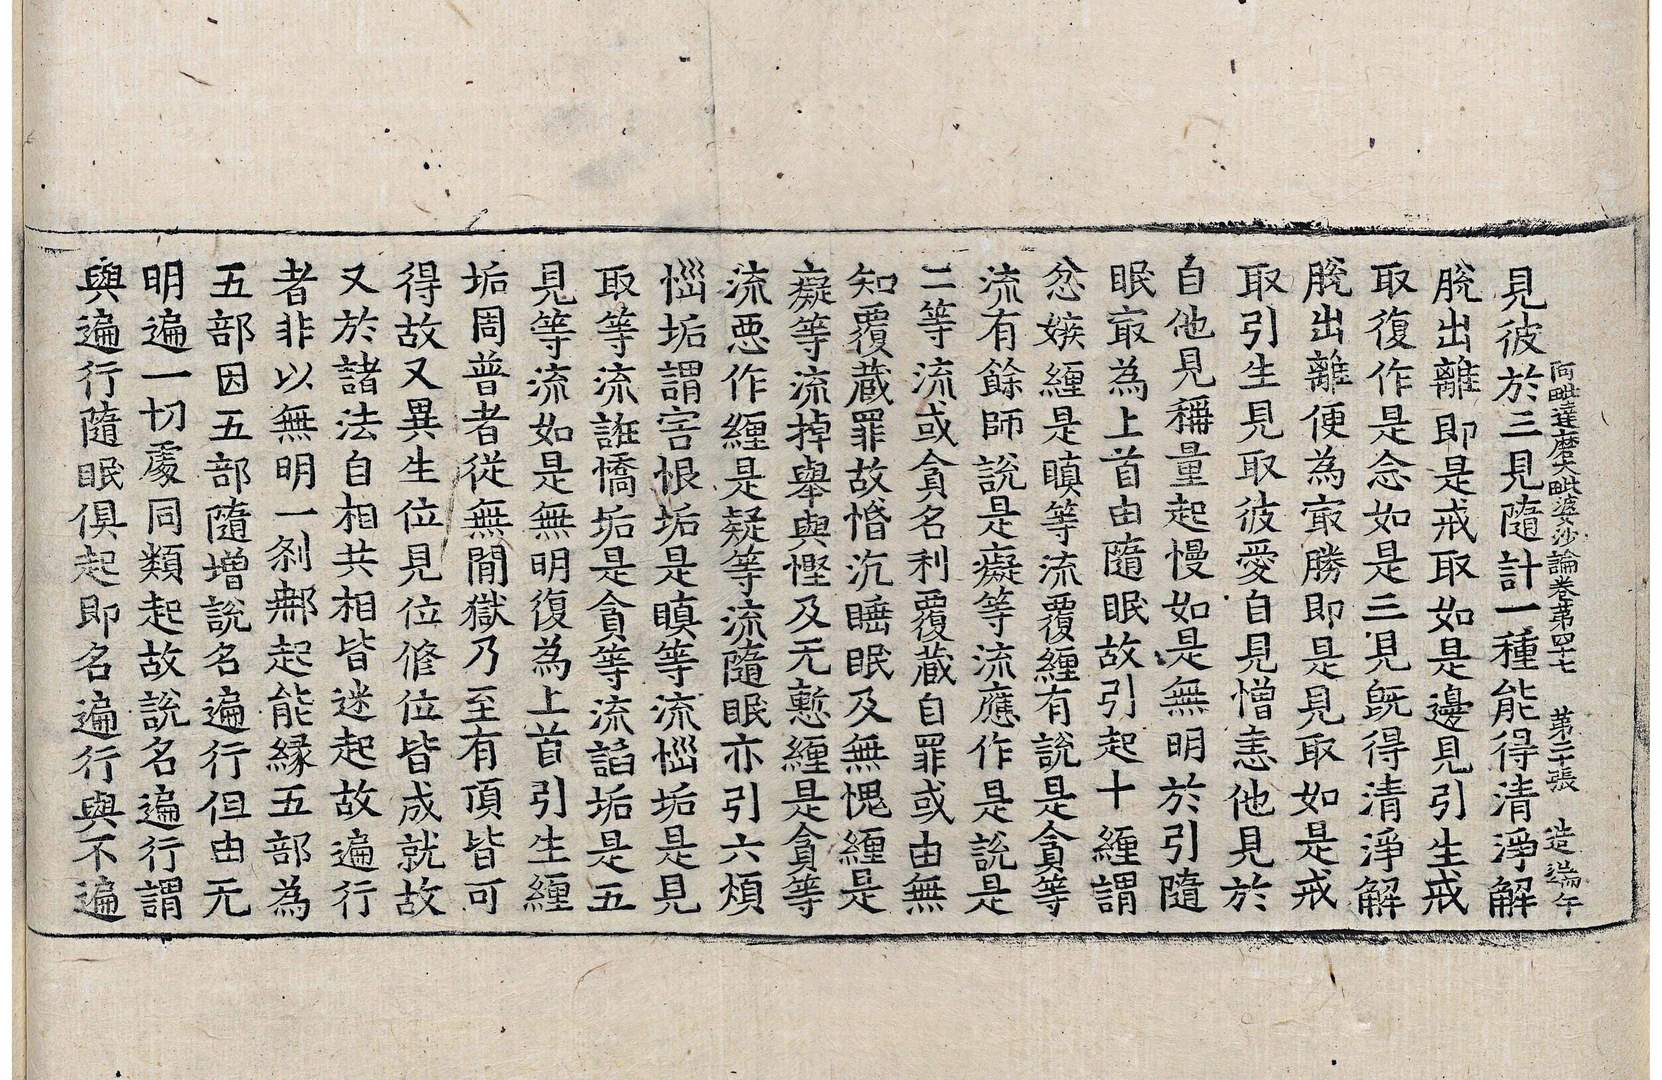 阿毗達磨大毗婆沙論卷第四十七　第二十張　造　端午
見彼於三見隨計一種能得清淨解
脫出離即是戒取如是邊見引生戒
取復作是念如是三見既得清淨解
脫出離便為㝡勝即是見取如是戒
取引生見取彼愛自見憎恚他見於
自他見稱量起慢如是無明於引隨
眠㝡為上首由隨眠故引起十纏謂
忿嫉纏是瞋等流覆纏有說是貪等
流有餘師說是癡等流應作是說是
二等流或貪名利覆藏自罪或由無
知覆藏罪故惛沉睡眠及無愧纏是
癡等流掉舉與慳及无慙纏是貪等
流惡作纏是疑等流隨眠亦引六煩
惱垢謂害恨垢是瞋等流惱垢是見
取等流誑憍垢是貪等流諂垢是五
見等流如是無明復為上首引生纏
垢周普者從無間獄乃至有頂皆可
得故又異生位見位修位皆成就故
又於諸法自相共相皆迷起故遍行
者非以無明一剎那起能緣五部為
五部因五部隨增說名遍行但由无
明遍一切處同類起故說名遍行謂
與遍行隨眠俱起即名遍行與不遍